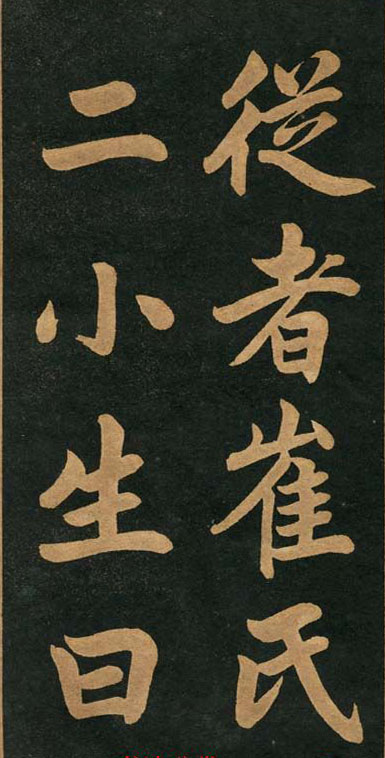 從者崔氏
二小生曰